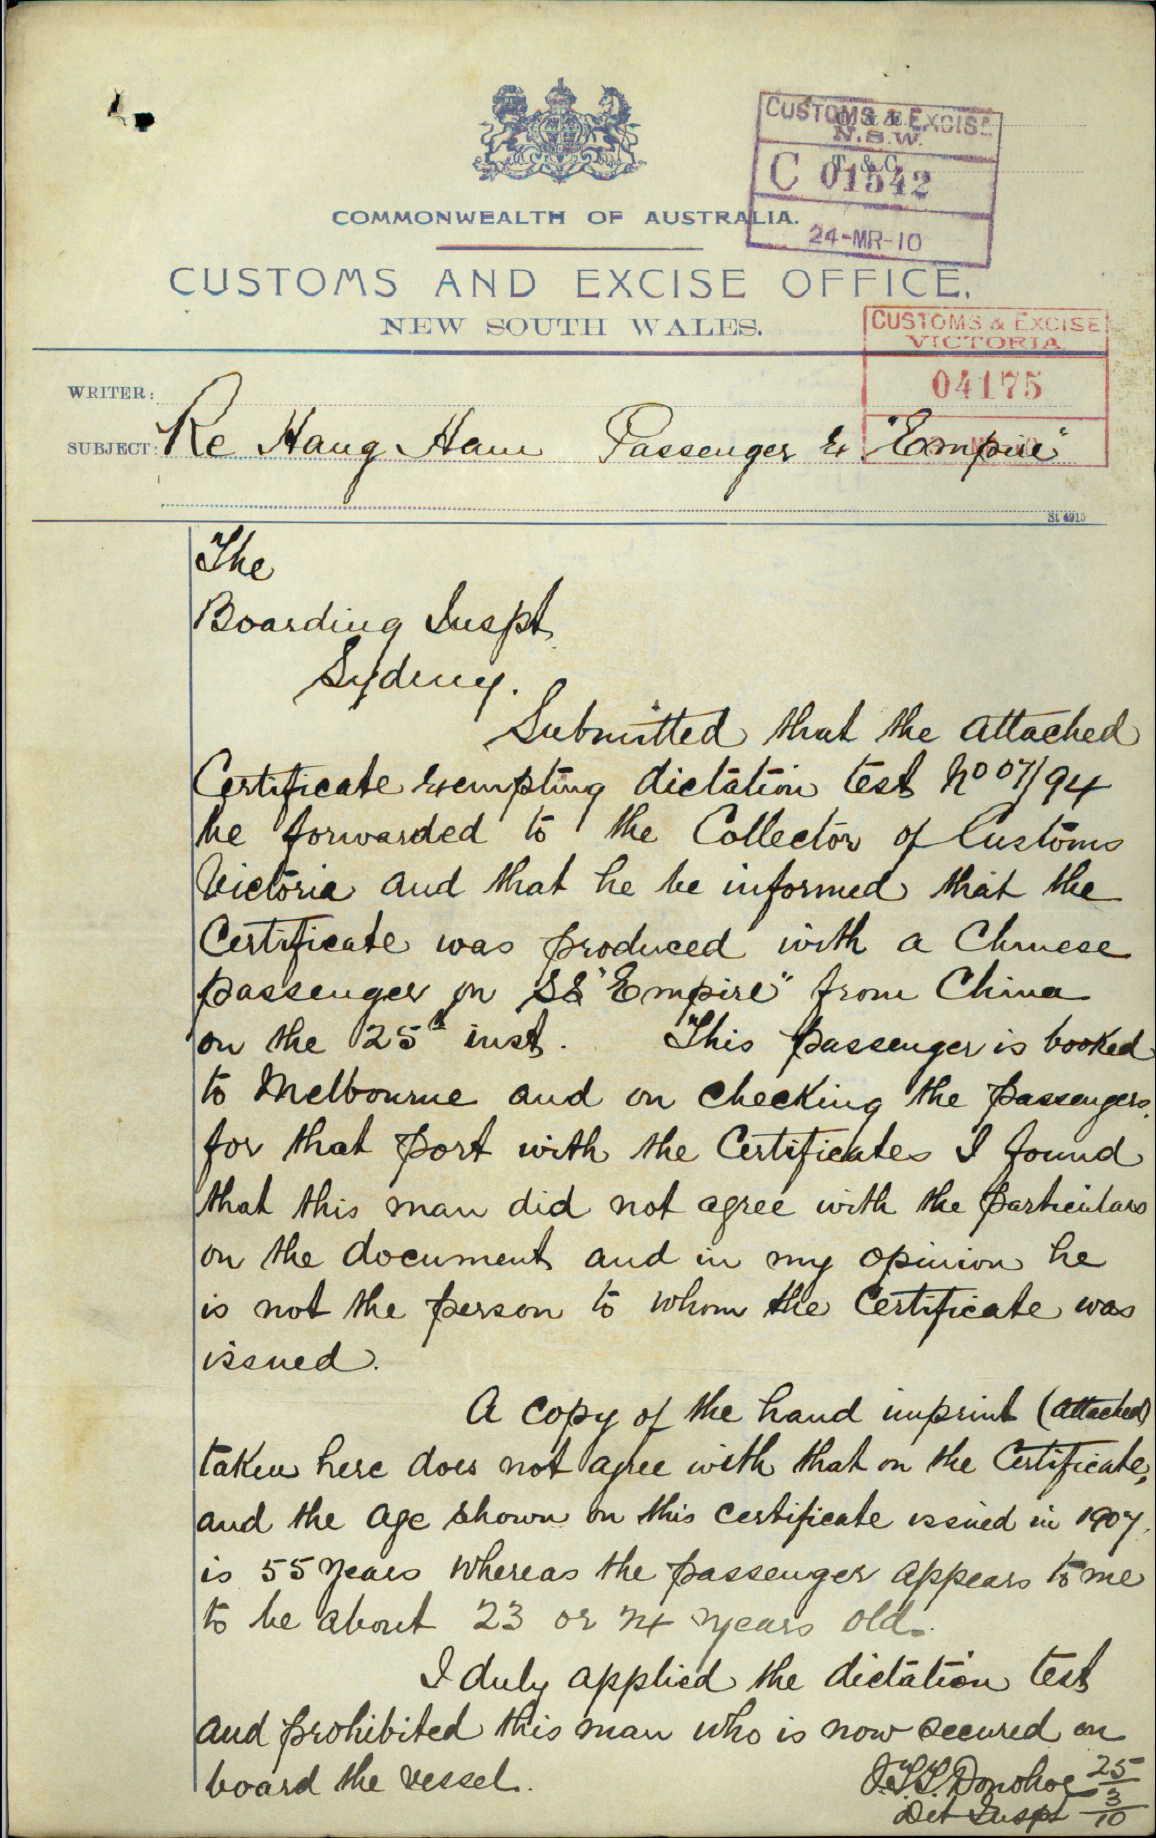 COMMONWEALTH OF AUSTRALIA.
CUSTOMS & EXCISE
N.S.W.
C 01542
24-MR-10
CUSTOMS AND EXCISE OFFICE,
NEW SOUTH WALES.
CUSTOMS & EXCISE
VICTORIA
04175
WRITER:
SUBJECT: Re Hang Ham Passenger Ex "Empire"
St. 4915
The
Boarding Inspt
Sydney.
Submitted that the attached
Certificate exempting dictation test No 07/94
be forwarded to the Collector of Customs
Victoria and that he be informed that the
Certificate was produced with a Chinese
passenger on SS "Empire" from China
on the 25th inst. This passenger is booked
to Melbourne and on checking the passengers
for that port with the Certificates I found
that this man did not agree with the particulars
on the document and in my opinion he
is not the person to whom the Certificate was
issued.
A copy of the hand imprint (attached)
taken here does not agree with that on the Certificate,
and the age shown on this certificate issued in 1907
is 55 years whereas the passenger appears to me
to be about 23 or 24 years old.
I duly applied the dictation test
and prohibited this man who is now secured on
board the vessel.
J.T.T. Donohoe 25/3/10
Det Inspt